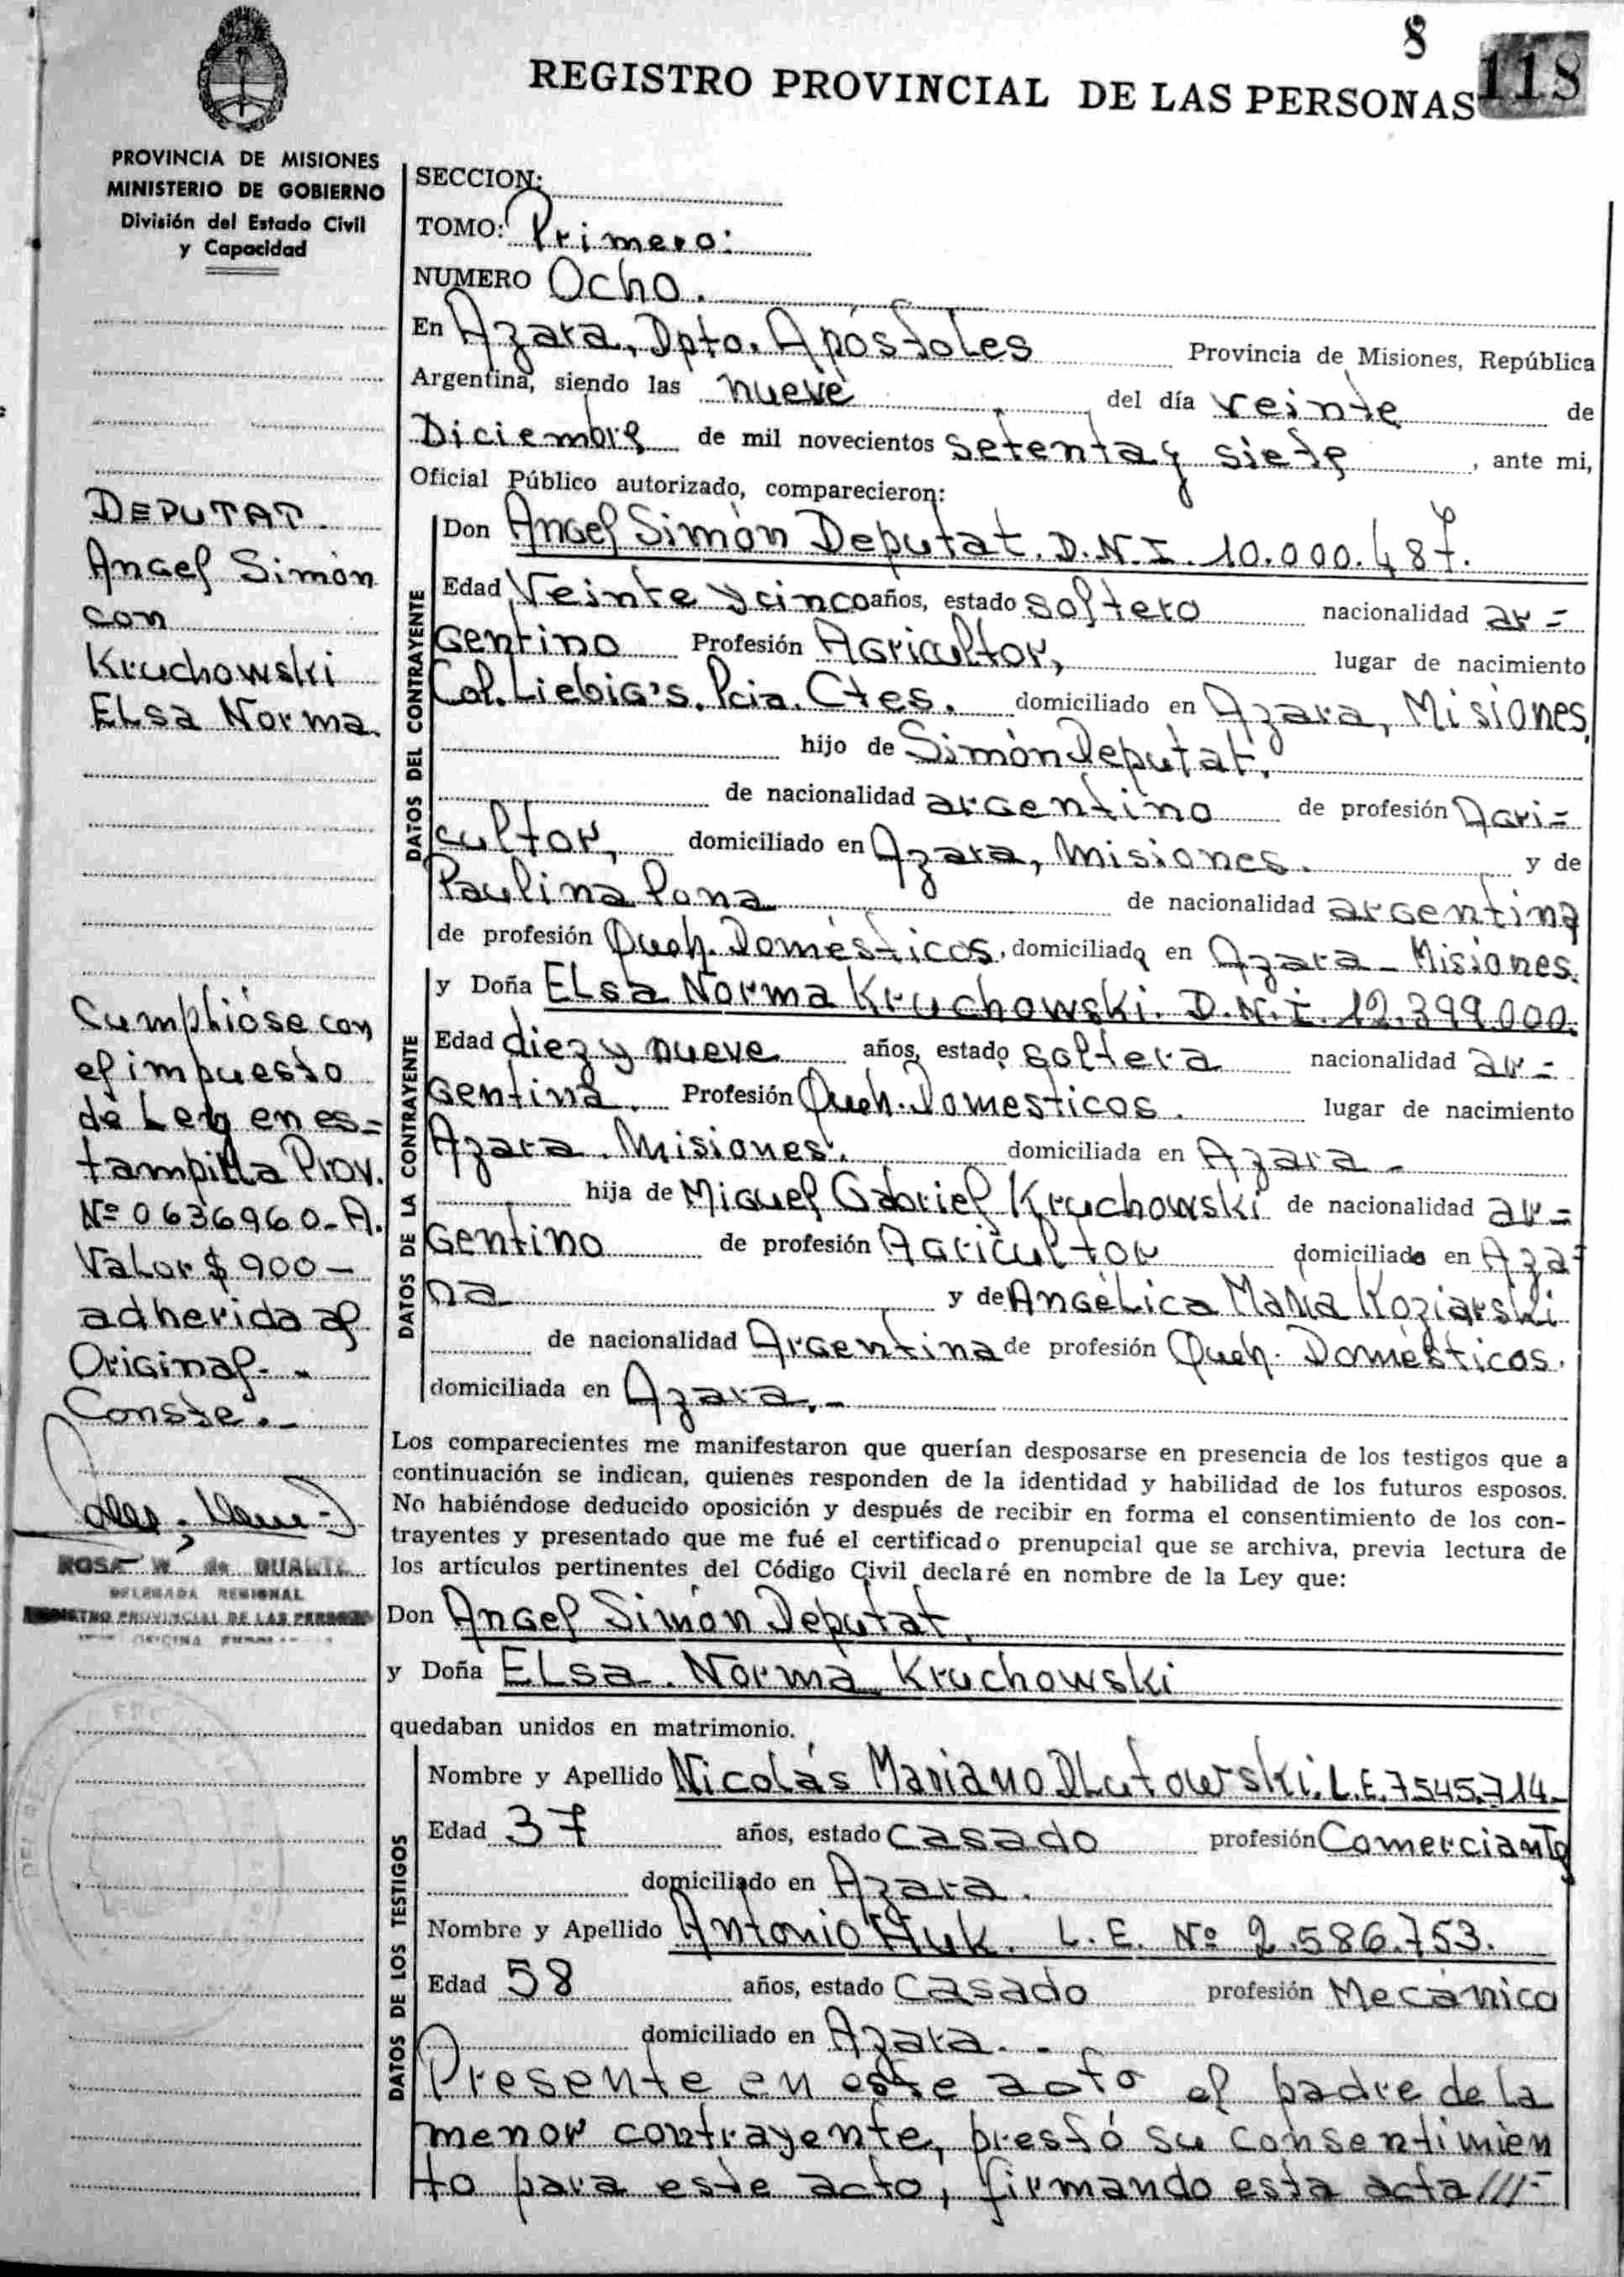 8
118
REGISTRO PROVINCIAL DE LAS PERSONAS
PROVINCIA DE MISIONES
MINISTERIO DE GOBIERNO
División del Estado Civil
y Capacidad
DEPUTAT.
Angel Simón
con
Kruchowski
Elsa Norma.
Cumplióse con
el impuesto
de Ley en es=
tampilla Prov.
Nº 0636960-A.
Valor $ 900 —
adherida al
Original. -
Conste. -
ROSA W. de DUARTE
DELEGADA REGIONAL
REGISTRO PROVINCIAL DE LAS PERSONAS
SECCION:
TOMO: Primero:
NUMERO Ocho.
En Azara, Dpto. Apóstoles Provincia de Misiones, República
Argentina, siendo las nueve del día veinte de
Diciembre de mil novecientos setenta y siete, ante mi,
Oficial Público autorizado, comparecieron:
DATOS DEL CONTRAYENTE
Don Angel Simón Deputat. D.N.I. 10.000.487.
Edad Veinte y cinco años, estado soltero nacionalidad ar=
gentino Profesión Agricultor, lugar de nacimiento
Col. Liebig's. Pcia. Ctes. domiciliado en Azara, Misiones,
hijo de Simón Deputat,
de nacionalidad argentino de profesión Agri=
cultor, domiciliado en Azara, Misiones. y de
Paulina de nacionalidad argentina
de profesión Queh. Domésticos, domiciliada en Azara - Misiones.
DATOS DE LA CONTRAYENTE
y Doña Elsa Norma Kruchowski. D.N.I. 12.399.000.
Edad diez y nueve años, estado soltera nacionalidad ar=
gentina. Profesión Queh. Domesticos. lugar de nacimiento
Azara. Misiones. domiciliada en Azara -
hija de Miguel Gabriel Kruchowski de nacionalidad ar=
gentino de profesión Agricultor domiciliado en Aza=
na y de Angélica María Koziarski
de nacionalidad Argentina de profesión Queh. Domésticos.
domiciliada en Azara. -
Los comparecientes me manifestaron que querían desposarse en presencia de los testigos que a
continuación se indican, quienes responden de la identidad y habilidad de los futuros esposos.
No habiéndose deducido oposición y después de recibir en forma el consentimiento de los con-
trayentes y presentado que me fué el certificado prenupcial que se archiva, previa lectura de
los artículos pertinentes del Código Civil declaré en nombre de la Ley que:
Don Angel Simón Deputat,
y Doña Elsa. Norma Kruchowski
quedaban unidos en matrimonio.
DATOS DE LOS TESTIGOS
Nombre y Apellido Nicolás Mariano Dlutowski. L.E. 7545.714-
Edad 37 años, estado casado profesión Comerciante
domiciliado en Azara.
Nombre y Apellido Antonio Huk. L.E. Nº 2.586.753.
Edad 58 años, estado casado profesión Mecánico
domiciliado en Azara. -
Presente en este acto el padre de la
menor contrayente, prestó su consentimien
to para este acto, firmando esta acta ///-